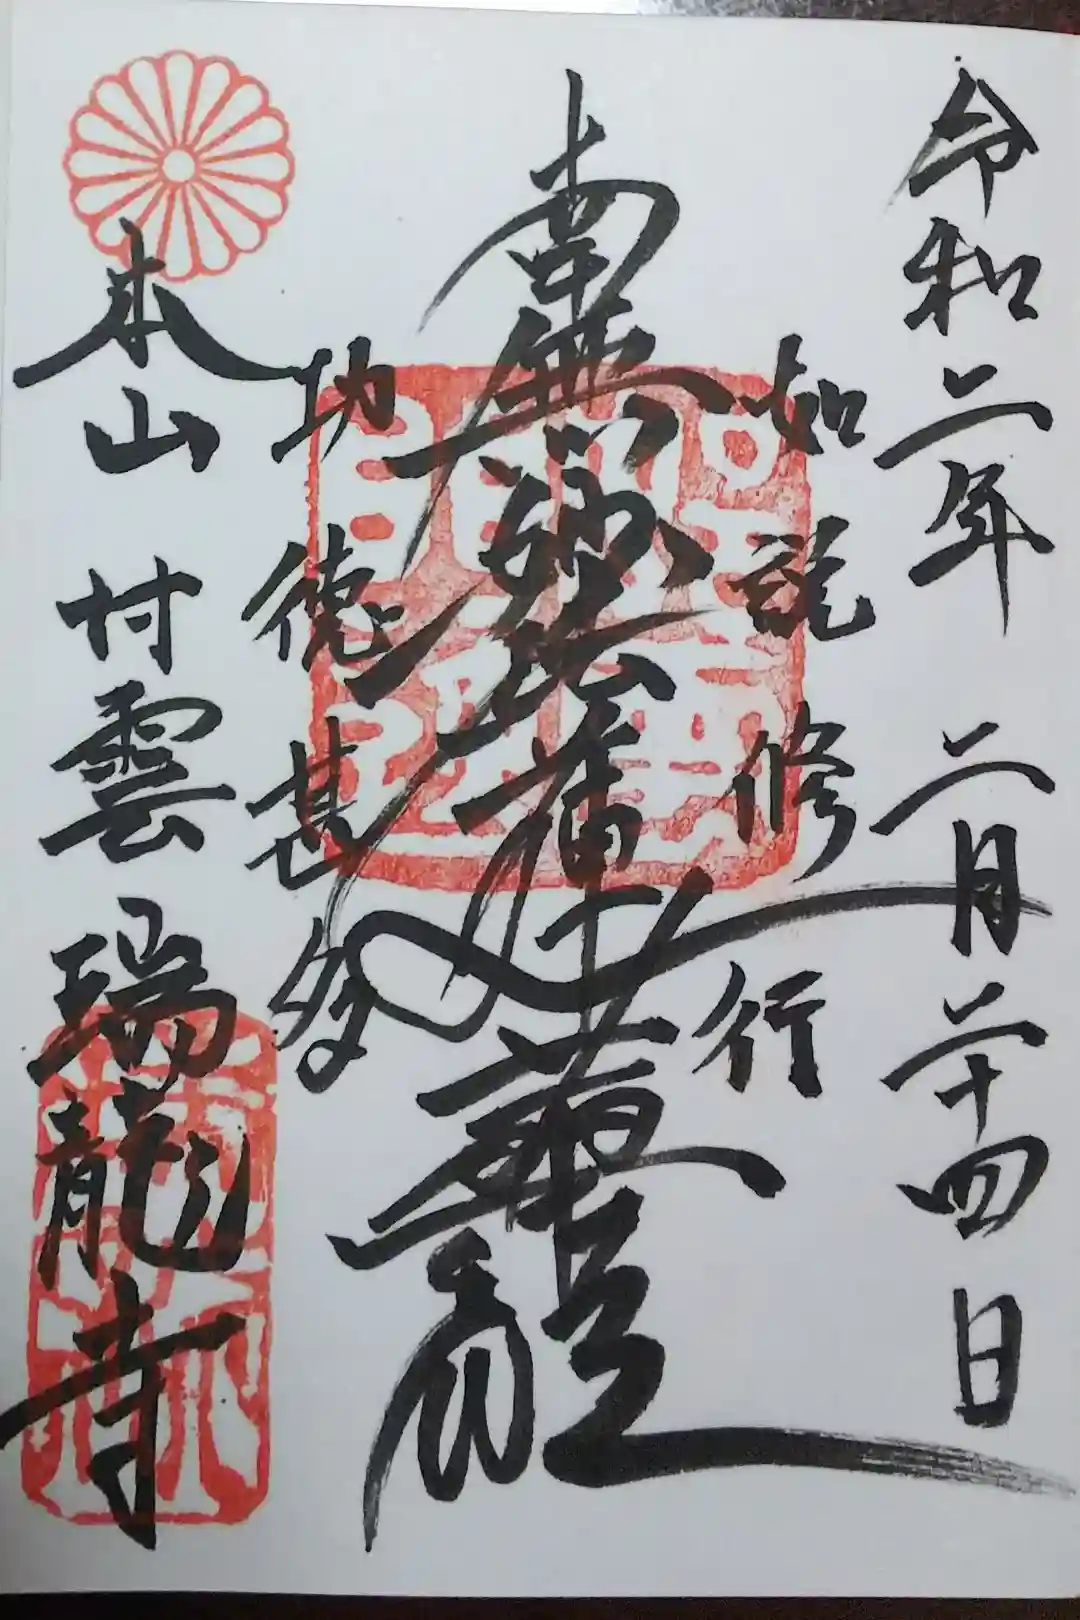 令和二年 二月二十四日
如説修行
南無妙法蓮華經
功徳甚多
本山 村雲 瑞龍寺